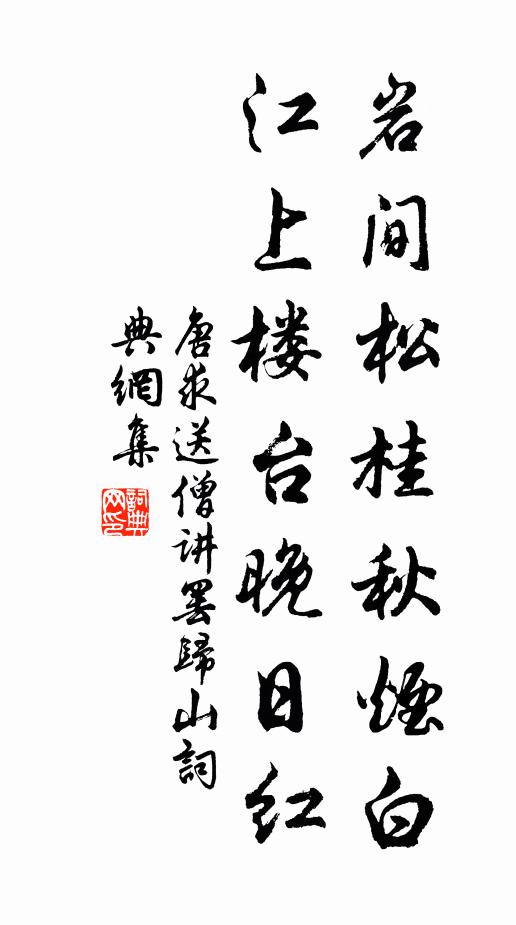 岩间松桂秋煙白
江上楼台晚日红
唐求送僧讲罢歸山詞
典網集
詞典网印